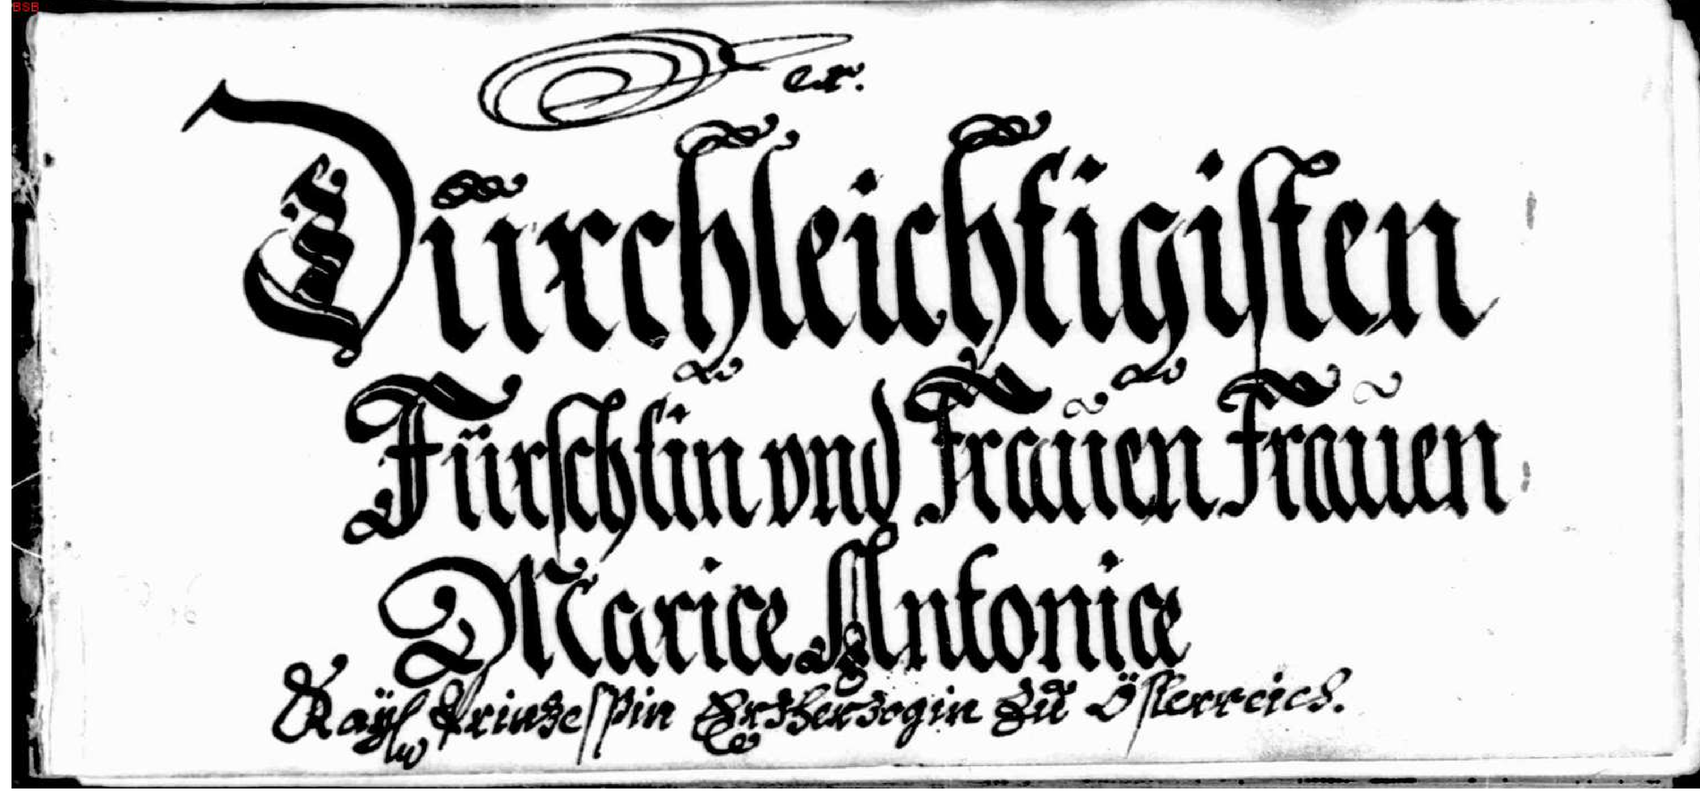 BSB
Der.
Dürchleichtigisten
Fürschtin vnd Fraüen Fraüen
Mariæ Antoniæ
Kaÿs Prinzessin Ertzherzogin Zu Össterreich.